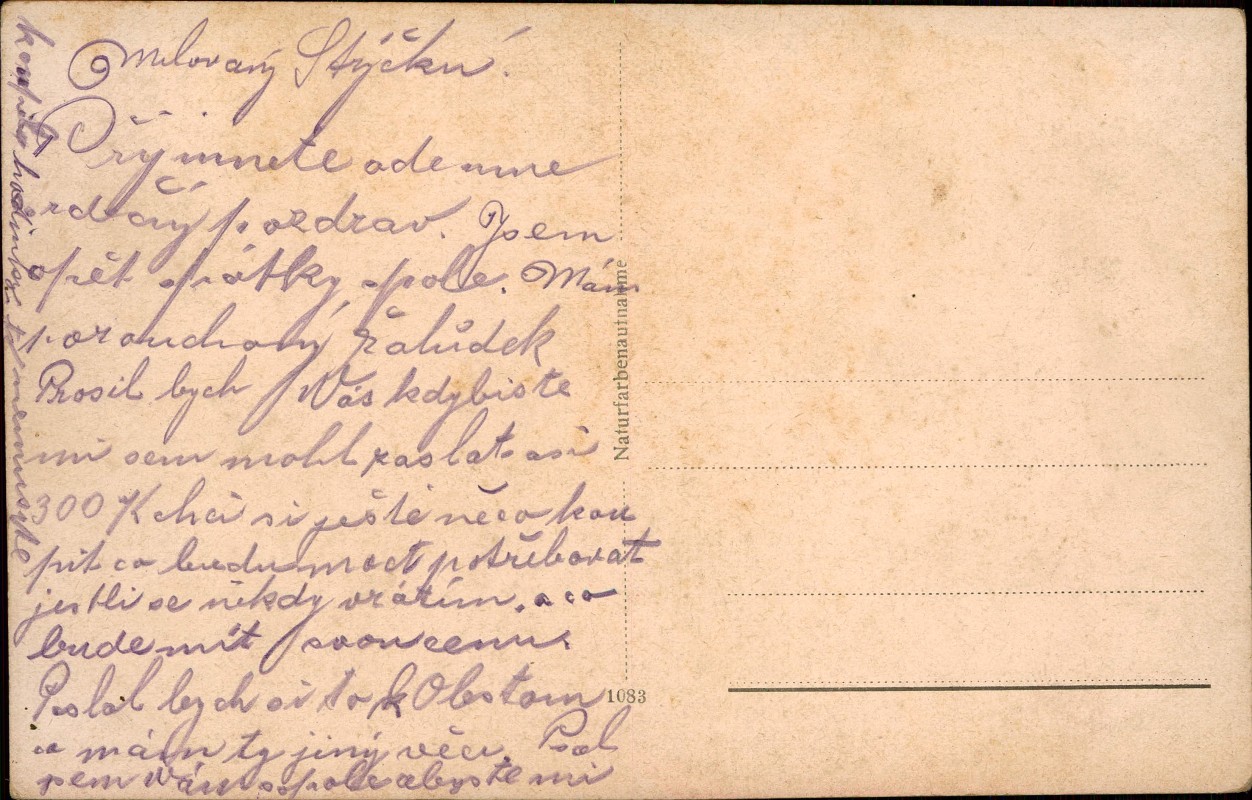 Milovaný Strýčku!
Přýmnete ode mne
srdečný pozdrav. Jsem
opět zpátky spole. Mám
porouchaný žalůdek
Prosil bych Vás kdybiste
mi sem mohl zaslat asi
300 K chci si ještě něco kou
pit co budu moct potřebovat
jestli se někdy vrátím. a co
bude mít svou cenu.
Poslal bych si to k Obstom
co mám ty jiný věci. Psal
jsem Vám spole abyste mi
koupil hodinky to nemusyte
Naturfarbenaufnahme
1083